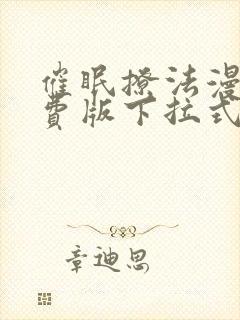 催眠撩法漫
费版下拉式
章迪思